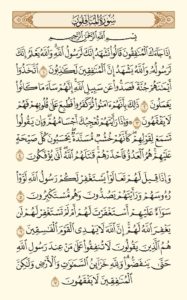 سُورَةُ المُنَافِقُونَ
بِسْمِ اللَّهِ الرَّحْمَٰنِ الرَّحِيمِ
إِذَا جَاءَكَ الْمُنَٰفِقُونَ قَالُوا نَشْهَدُ إِنَّكَ لَرَسُولُ اللَّهِ وَاللَّهُ يَعْلَمُ إِنَّكَ
لَرَسُولُهُ وَاللَّهُ يَشْهَدُ إِنَّ الْمُنَٰفِقِينَ لَكَٰذِبُونَ ١ اتَّخَذُوا
أَيْمَٰنَهُمْ جُنَّةً فَصَدُّوا عَن سَبِيلِ اللَّهِ إِنَّهُمْ سَاءَ مَا كَانُوا
يَعْمَلُونَ ٢ ذَٰلِكَ بِأَنَّهُمْ ءَامَنُوا ثُمَّ كَفَرُوا فَطُبِعَ عَلَىٰ قُلُوبِهِمْ فَهُمْ
لَا يَفْقَهُونَ ٣ وَإِذَا رَأَيْتَهُمْ تُعْجِبُكَ أَجْسَامُهُمْ وَإِن يَقُولُوا
تَسْمَعْ لِقَوْلِهِمْ كَأَنَّهُمْ خُشُبٌ مُّسَنَّدَةٌ يَحْسَبُونَ كُلَّ صَيْحَةٍ
عَلَيْهِمْ هُمُ الْعَدُوُّ فَاحْذَرْهُمْ قَٰتَلَهُمُ اللَّهُ أَنَّىٰ يُؤْفَكُونَ ٤
وَإِذَا قِيلَ لَهُمْ تَعَالَوْا يَسْتَغْفِرْ لَكُمْ رَسُولُ اللَّهِ لَوَّوْا
رُءُوسَهُمْ وَرَأَيْتَهُمْ يَصُدُّونَ وَهُم مُّسْتَكْبِرُونَ ٥
سَوَاءٌ عَلَيْهِمْ أَسْتَغْفَرْتَ لَهُمْ أَمْ لَمْ تَسْتَغْفِرْ لَهُمْ لَن
يَغْفِرَ اللَّهُ لَهُمْ إِنَّ اللَّهَ لَا يَهْدِي الْقَوْمَ الْفَٰسِقِينَ ٦
هُمُ الَّذِينَ يَقُولُونَ لَا تُنفِقُوا عَلَىٰ مَنْ عِندَ رَسُولِ اللَّهِ
حَتَّىٰ يَنفَضُّوا وَلِلَّهِ خَزَائِنُ السَّمَٰوَٰتِ وَالْأَرْضِ وَلَٰكِنَّ
الْمُنَٰفِقِينَ لَا يَفْقَهُونَ ٧